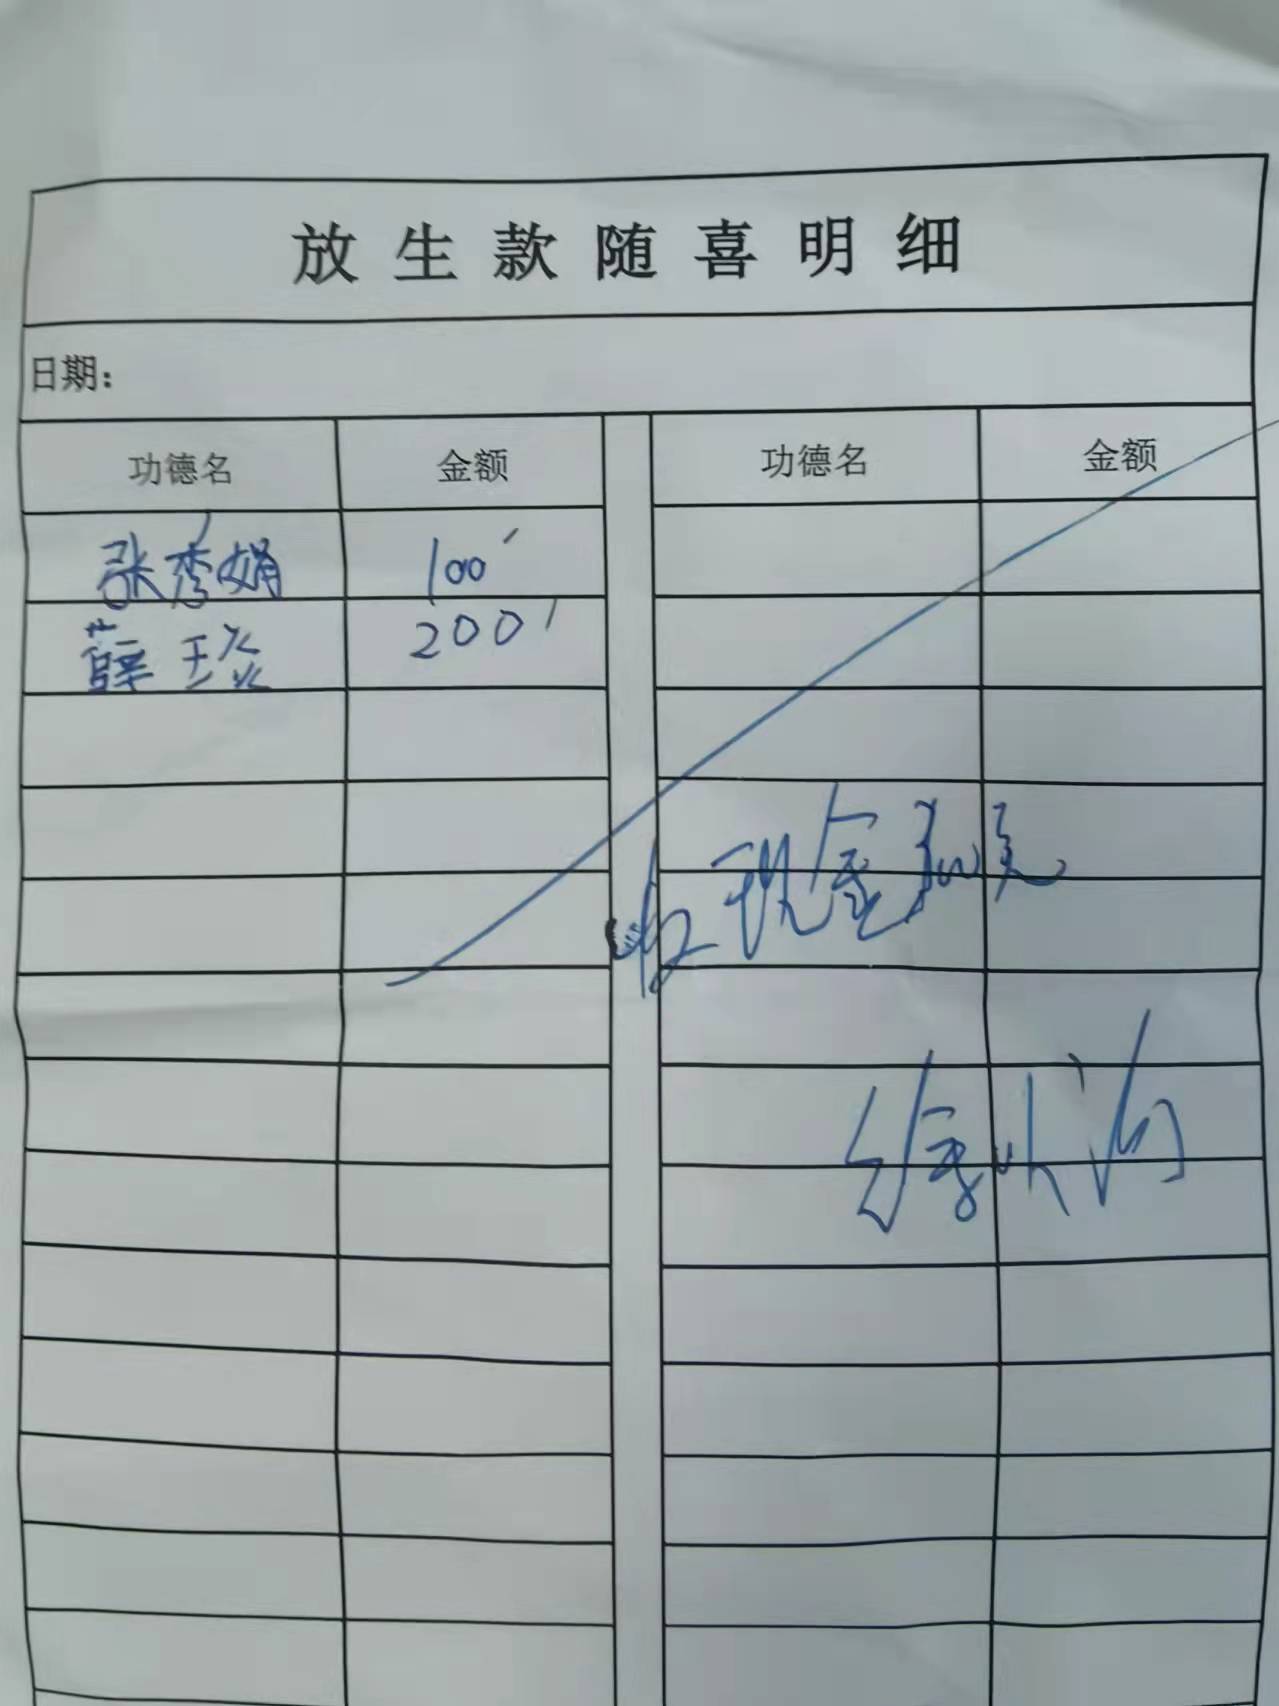 放生款随喜明细
日期：
功德名 金额 功德名 金额
张秀娟 100
薛琰 200
收现金